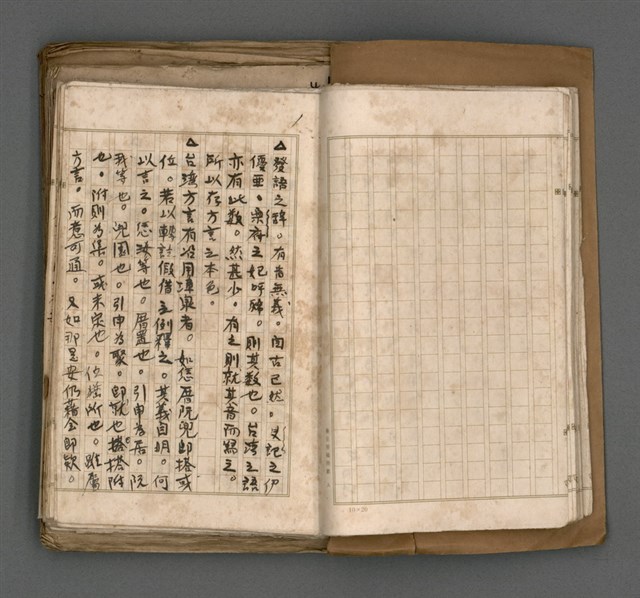 △發語之辭。有音無義。自古已然。史記之夥
優亜。樂府之妃呼豨。則其数也。台湾之語
亦有此数。然甚少。有之則就其音而寫之。
所以存方言之本色。
△台湾方言有沿用漳泉者。如恁厝阮兜即搭或
位。若以轉註假借之例釋之。其義自明。何
以言之。恁汝等也。厝置也。引申為居。阮
我等也。兜圍也。引申為聚。即就也搭搭附
也。附則為集。或未定也。位僅所也。雖屬
方言。而意可通。又如那是安仍藉令即欵。
10×20